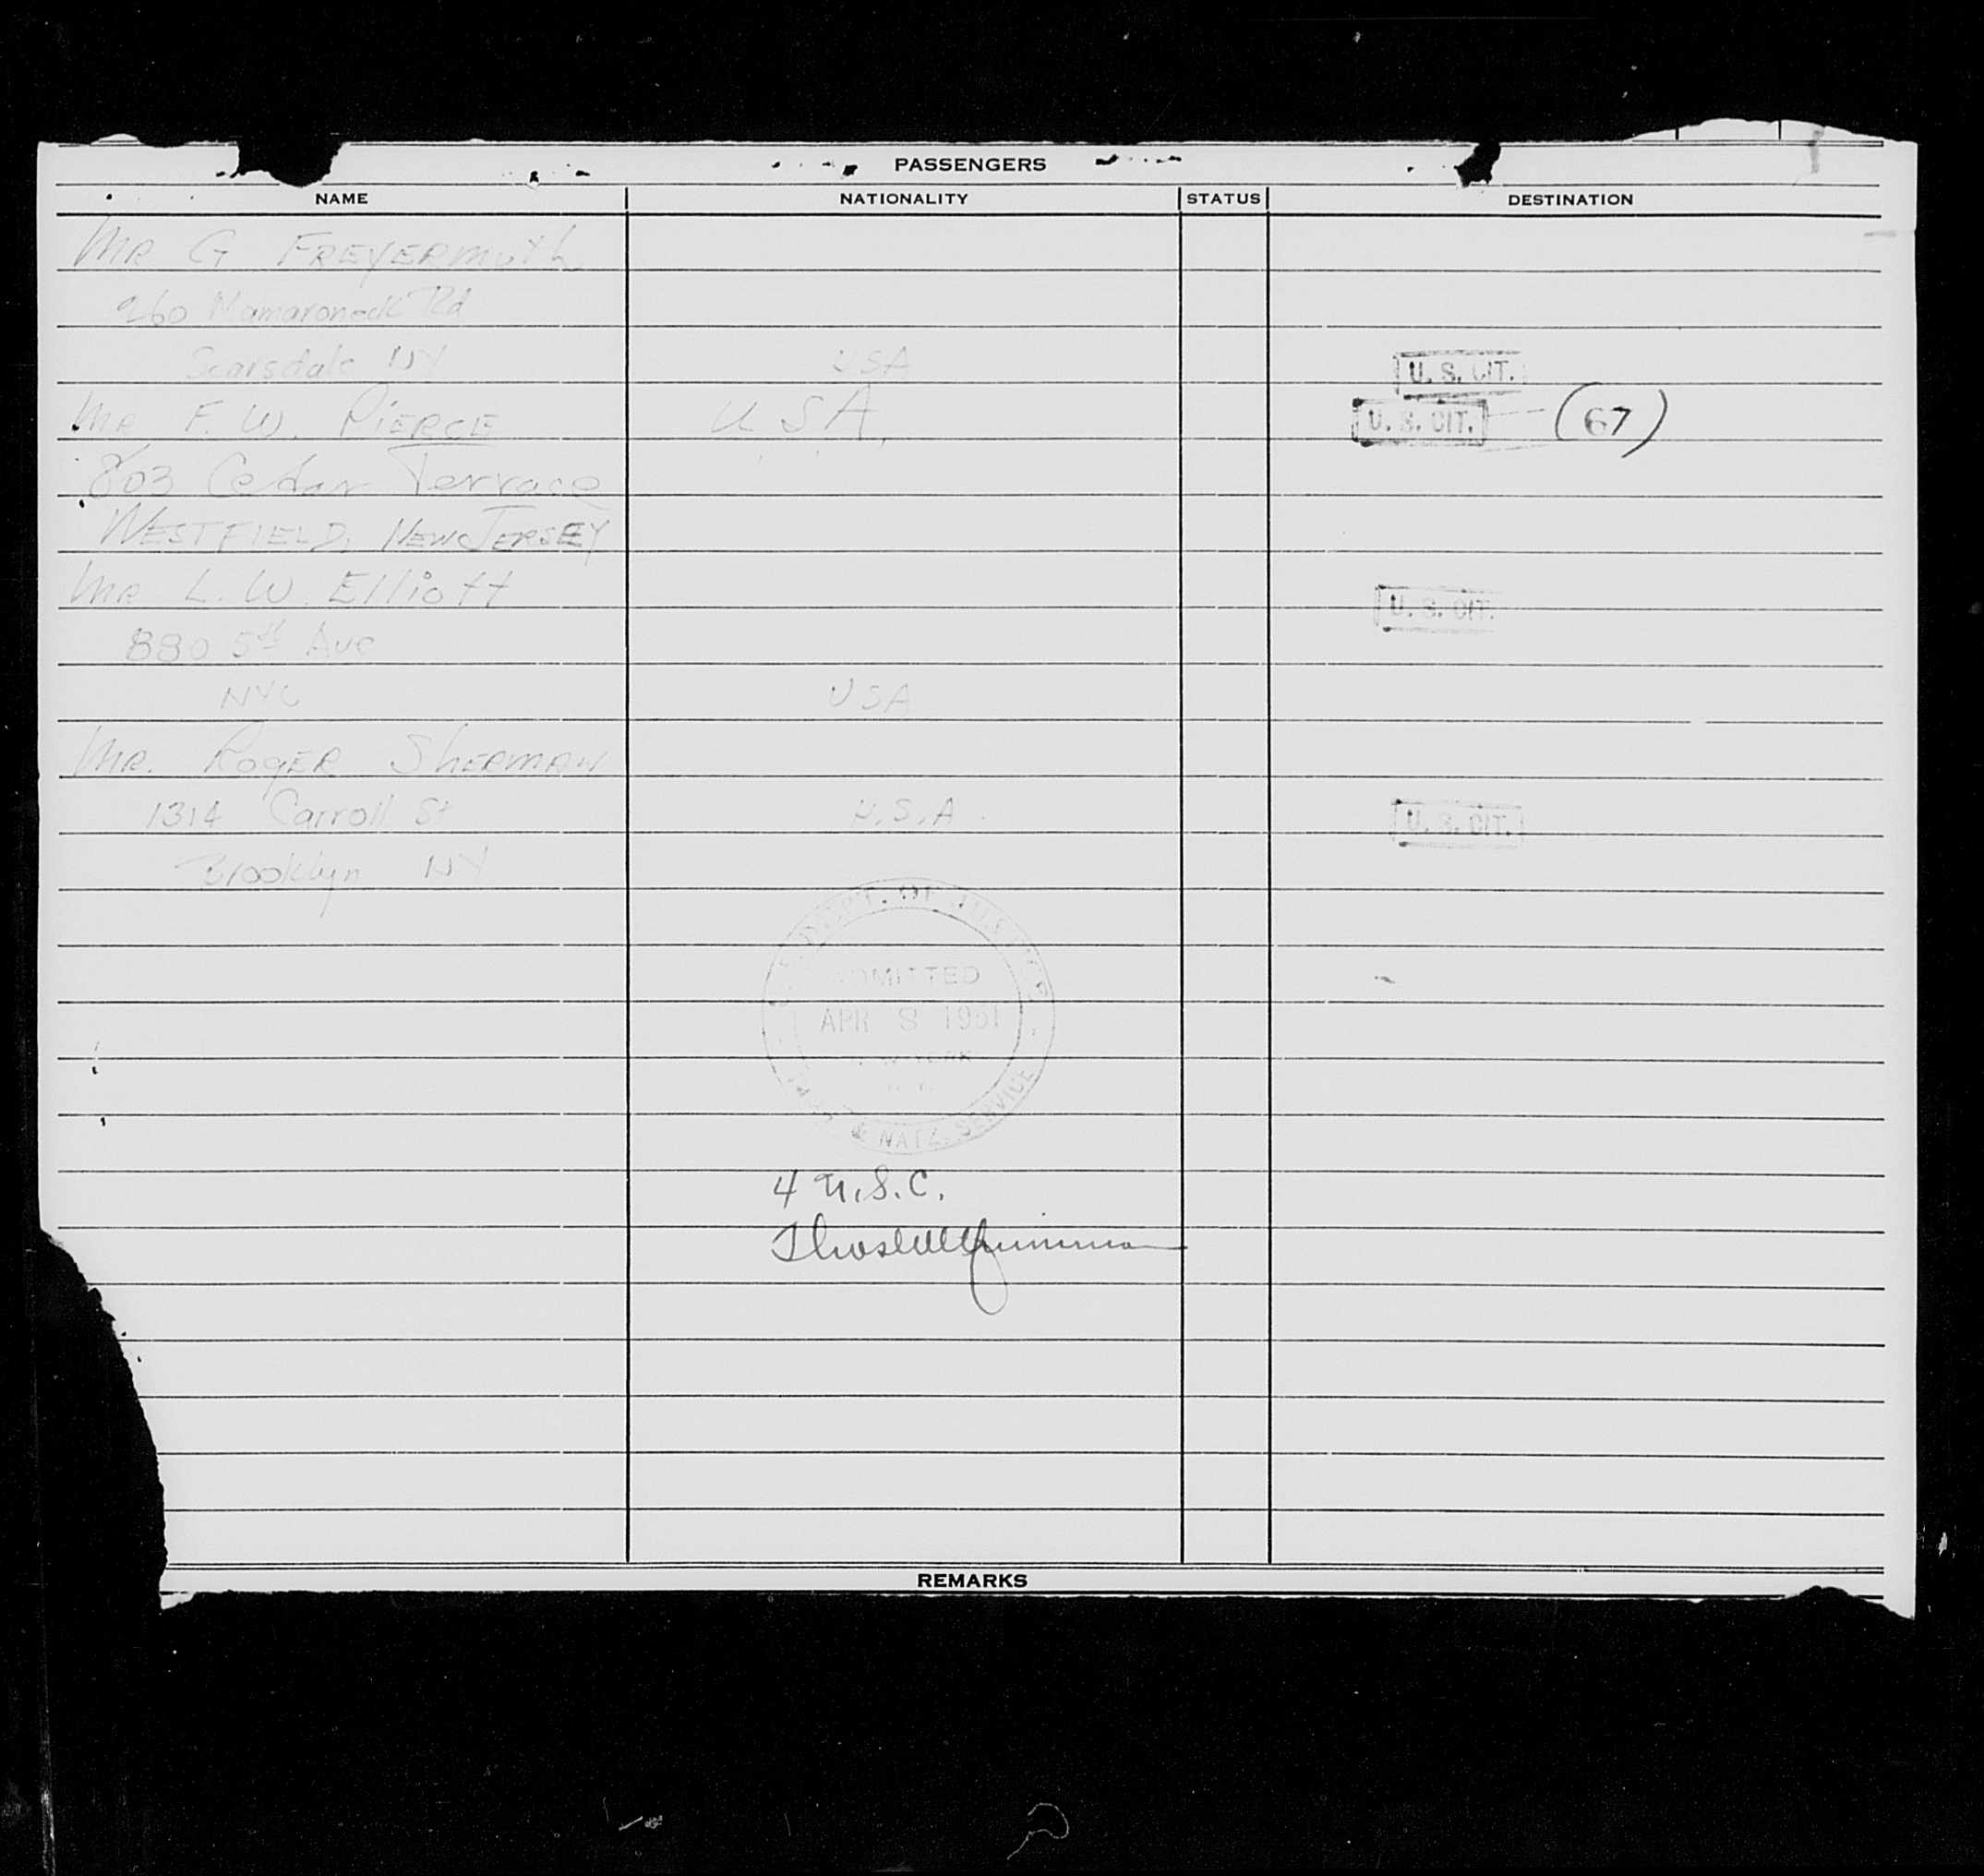 PASSENGERS
NAME NATIONALITY STATUS DESTINATION
MR G FREYERMUTH
960 Mamaroneck Rd
Scarsdale NY USA U. S. CIT.
MR F. W. PIERCE U SA U. S. CIT. (67)
803 Cedar Terrace
WESTFIELD, NEW JERSEY
MR L. W. Elliott U. S. CIT.
880 5th Ave
NYC USA
MR. ROGER SHERMAN
1314 Carroll St U.S.A. U. S. CIT.
Brooklyn NY
DEPT. OF JUSTICE
ADMITTED
APR 8 1951
NEW YORK
N. Y.
& NATZ. SERVICE
4 U.S.C.
REMARKS